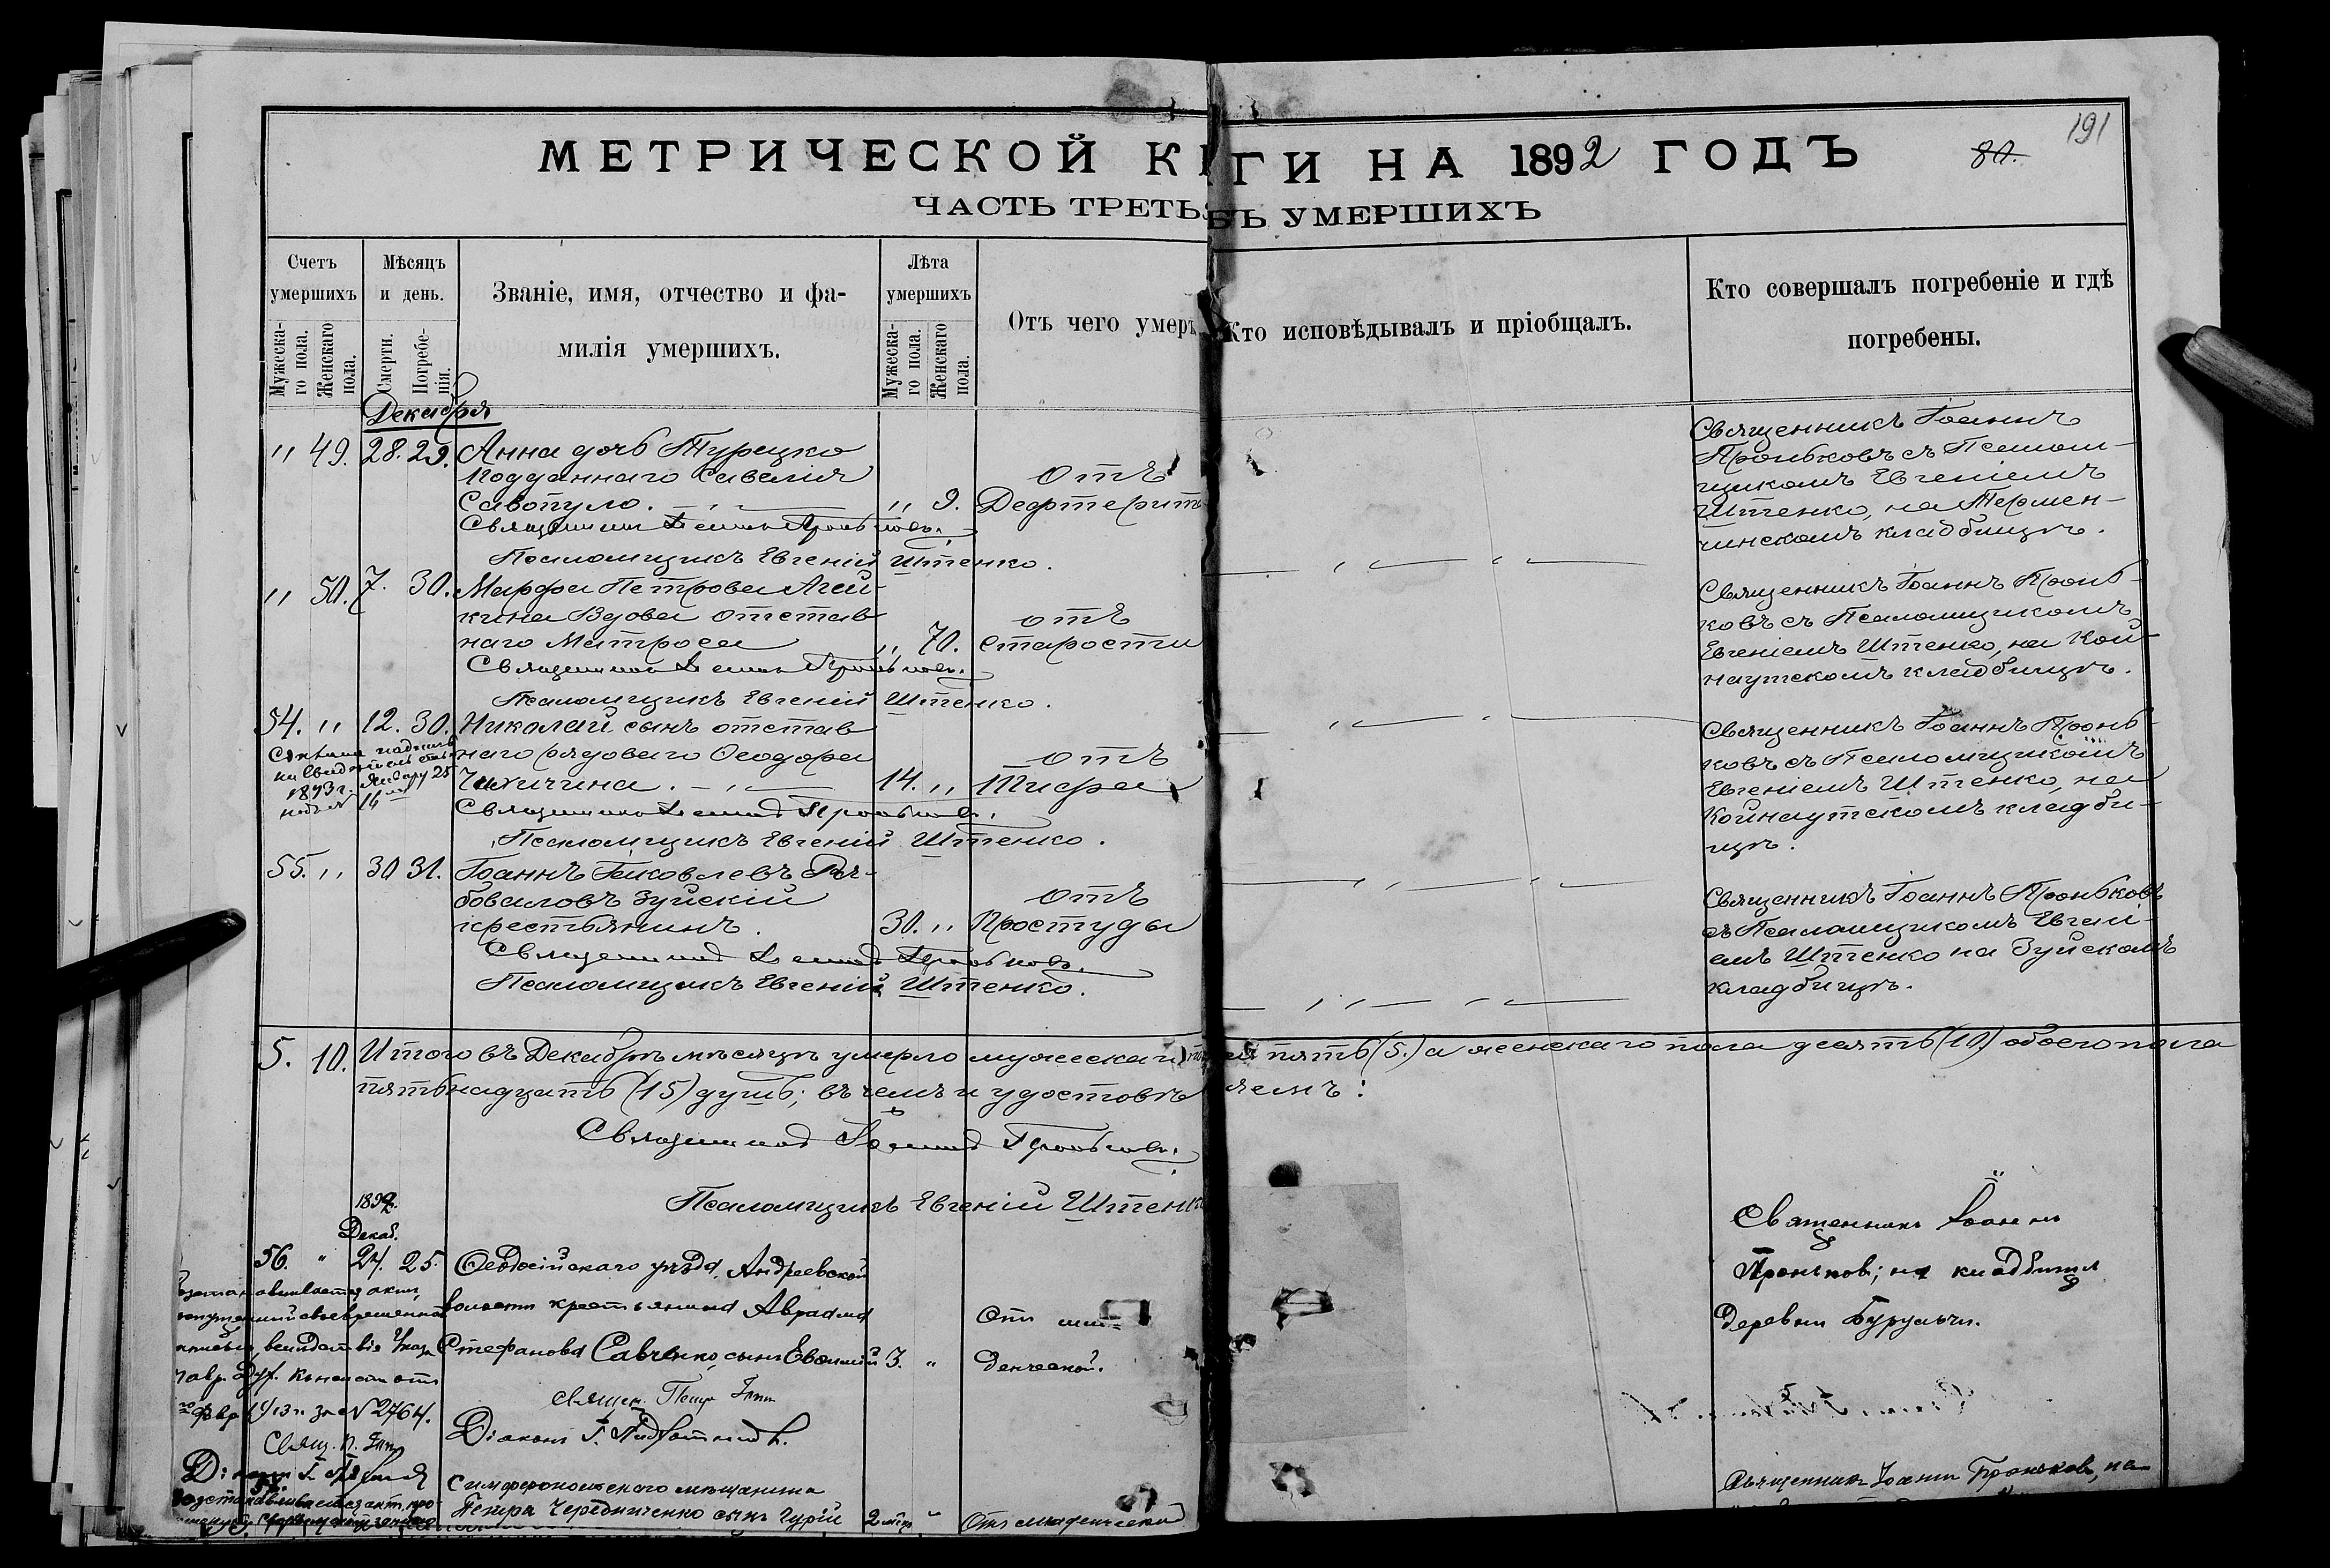 191
80.
МЕТРИЧЕСКОЙ К ГИ НА 1892 ГОДЪ
ЧАСТЬ ТРЕТЬ УМЕРШИХЪ
Счетъ умершихъ
Мужеска-го пола.
Женскаго пола.
Мѣсяцъ и день.
Смерти.
Погребе-нія.
Званіе, имя, отчество и фа-
милія умершихъ.
Лѣта умершихъ
Мужеска-го пола.
Женскаго пола.
Отъ чего умеръ
Кто исповѣдывалъ и пріобщалъ.
Кто совершалъ погребеніе и гдѣ
погребены.
Декабря
" 49. 28. 29. Анна дочь Турецко
подданнаго Савелія
Савопуло. " 9.
отъ
Дефтерить
Священникъ Іоаннъ Проньковъ.
Псаломщикъ Евгеній Штенко.
Священникъ Іоаннъ
Проньковъ съ Псалом-
щикомъ Евгеніемъ
Штенко, на Термен-
чинскомъ кладбищѣ.
" 50. 7. 30. Марфа Петрова Агей-
кина Вдова отстав
наго Матроса " 70.
отъ
старости
Священникъ Іоаннъ Проньковъ.
Псаломщикъ Евгеній Штенко.
Священникъ Іоаннъ Пронь-
ковъ съ Псаломщикомъ
Евгеніемъ Штенко, на Кой-
наутскомъ кладбищѣ.
54. " 12. 30. Николай сынъ отстав
наго рядового Ѳеодора
14. "
отъ
Тифа
1893 г. Января 25
Священникъ Іоаннъ Проньковъ.
Псаломщикъ Евгеній Штенко.
Священникъ Іоаннъ Пронь-
ковъ съ Псаломщикомъ
Евгеніемъ Штенко, на
Койнаутскомъ кладби-
щѣ.
55. " 30 31. Іоаннъ Іаковлевъ Ря-
боваловъ Зуйскій
крестьянинъ. 30. "
отъ
Простуды
Священникъ Іоаннъ Проньковъ.
Псаломщикъ Евгеній Штенко.
Священникъ Іоаннъ Проньковъ
съ Псаломщикомъ Евгені-
емъ Штенко на Зуйскомъ
кладбищѣ.
5. 10. Итого въ Декабрѣ мѣсяцѣ умерло мужескаго пола пять (5.) а женскаго пола десять (10.) обоего пола
пятьнадцать (15) душъ; въ чемъ и удостовѣряемъ:
Священникъ Іоаннъ Проньковъ.
Псаломщикъ Евгеній Штенко
1892.
Декаб.
56. " 24. 25. Ѳеодосійскаго уѣзда, Андреевской
волости крестьянина Авраама
Стефанова Савченко, сынъ Евфимій 3. "
Отъ мла-
денческой.
Священникъ Іоаннъ
Проньковъ; на кладбищѣ
деревни Бурульчи.
за № 2764.
Свящ. П.
Священ. Петръ
Діаконъ
Симферопольскаго мѣщанина
Петра Чередниченко сынъ Гурій 2 мѣс. "
Отъ младенческой
Священникъ Іоаннъ Проньковъ, на